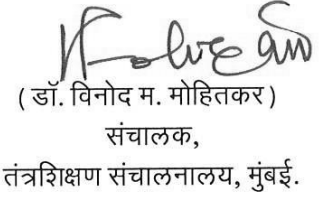 ( डॉ. विनोद म. मोहितकर )
संचालक,
तंत्रशिक्षण संचालनालय, मुंबई.